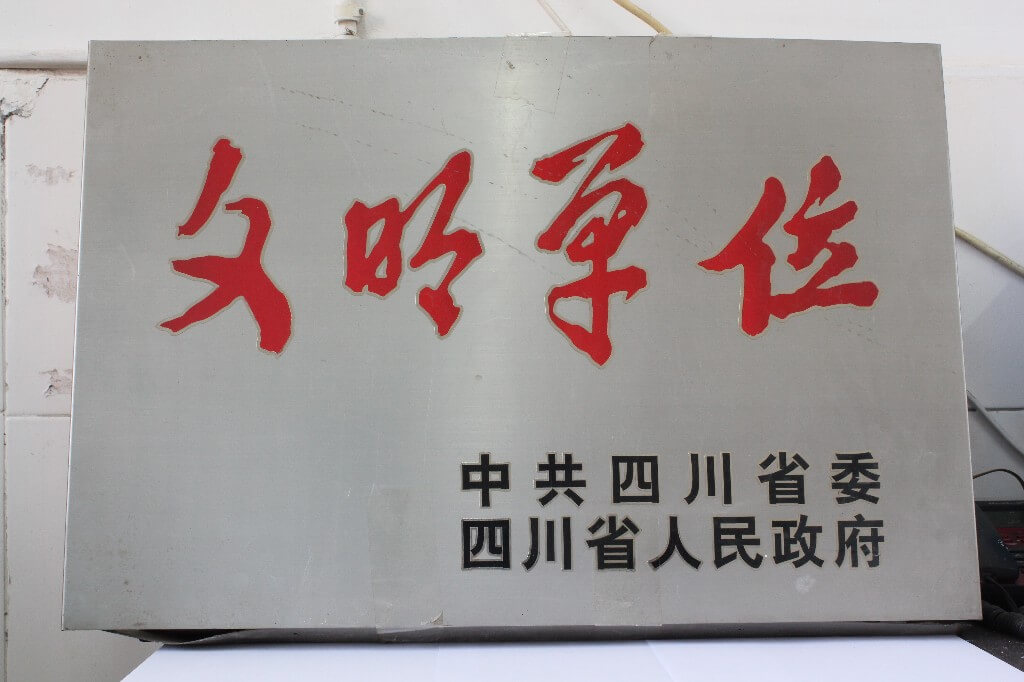 文明单位
中共四川省委
四川省人民政府